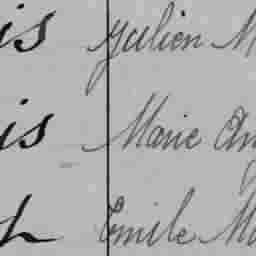 is Julien M
is Marie An
Emile Ma